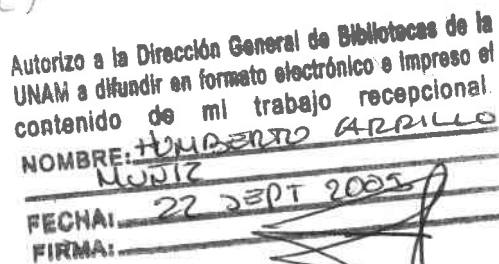 Autorizo a la Dirección General de Bibliotecas de la
UNAM a difundir en formato electrónico e impreso el
contenido de mi trabajo recepcional.
NOMBRE: HUMBERTO CARRILLO
MUNIZ
FECHA: 22 SEPT 2005
FIRMA: